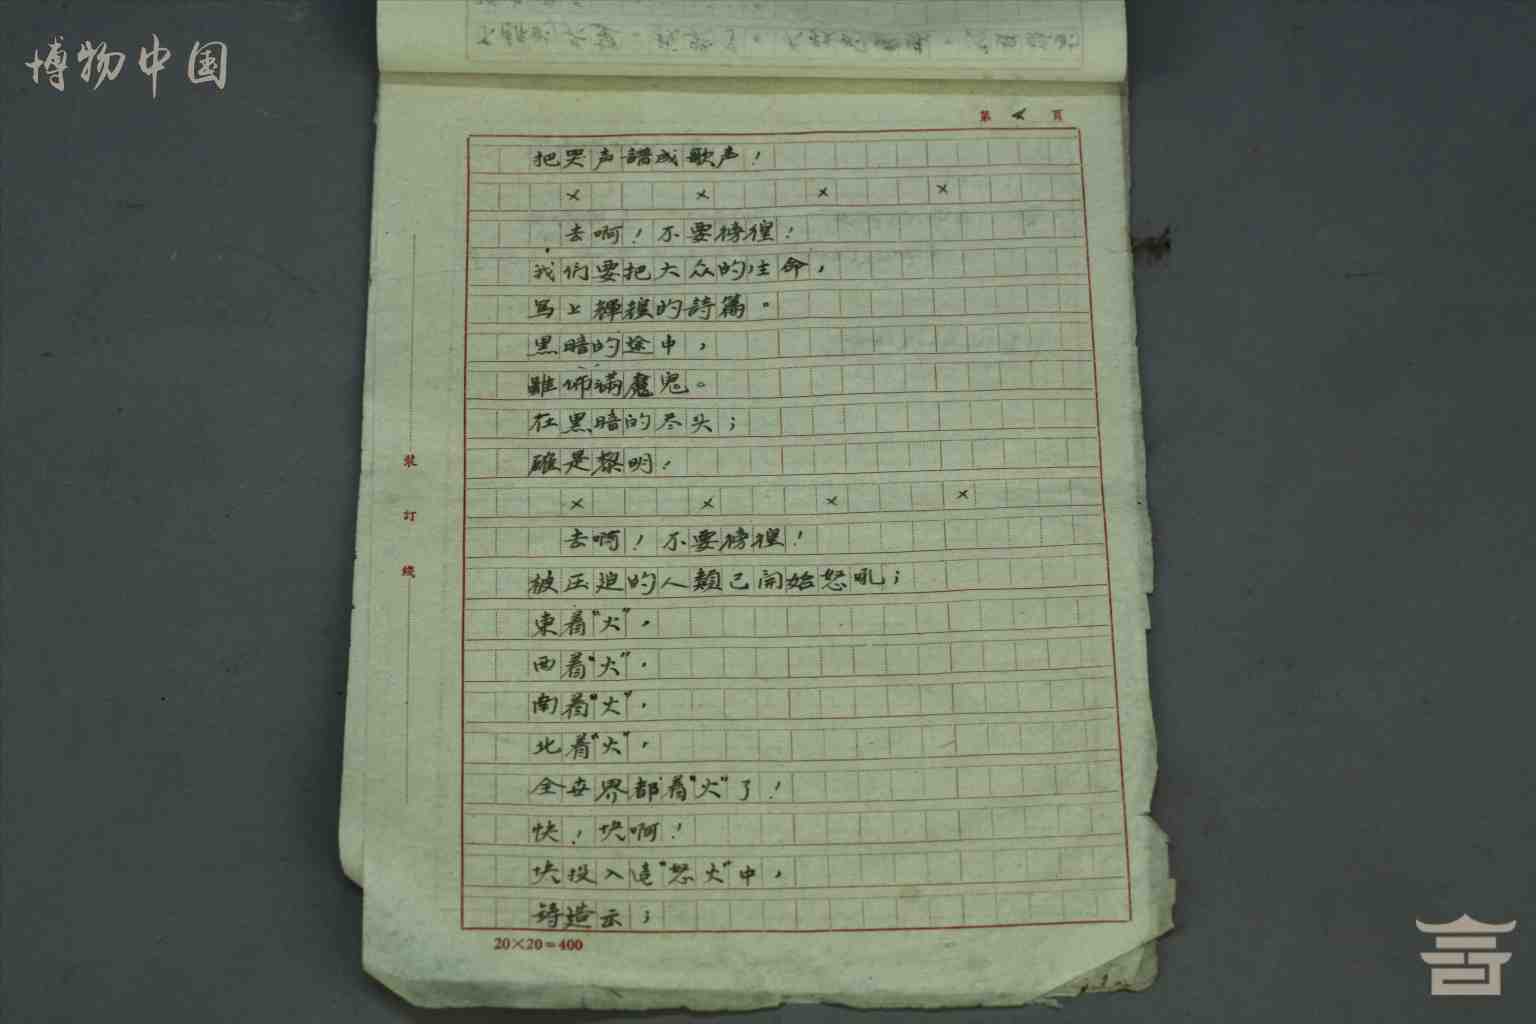 博物中国
第 4 頁
把哭声譜成歌声！
× × × ×
去啊！不要徬徨！
我们要把大众的生命，
写上輝煌的詩篇。
黑暗的途中，
雖佈满魔鬼。
在黑暗的尽头；
確是黎明！
× × × ×
去啊！不要徬徨！
被压迫的人類已開始怒吼；
東着“火”，
西着“火”，
南着“火”，
北着“火”，
全世界都着“火”了！
快！快啊！
快投入這“怒火”中，
铸造示；
裝訂綫
20×20=400